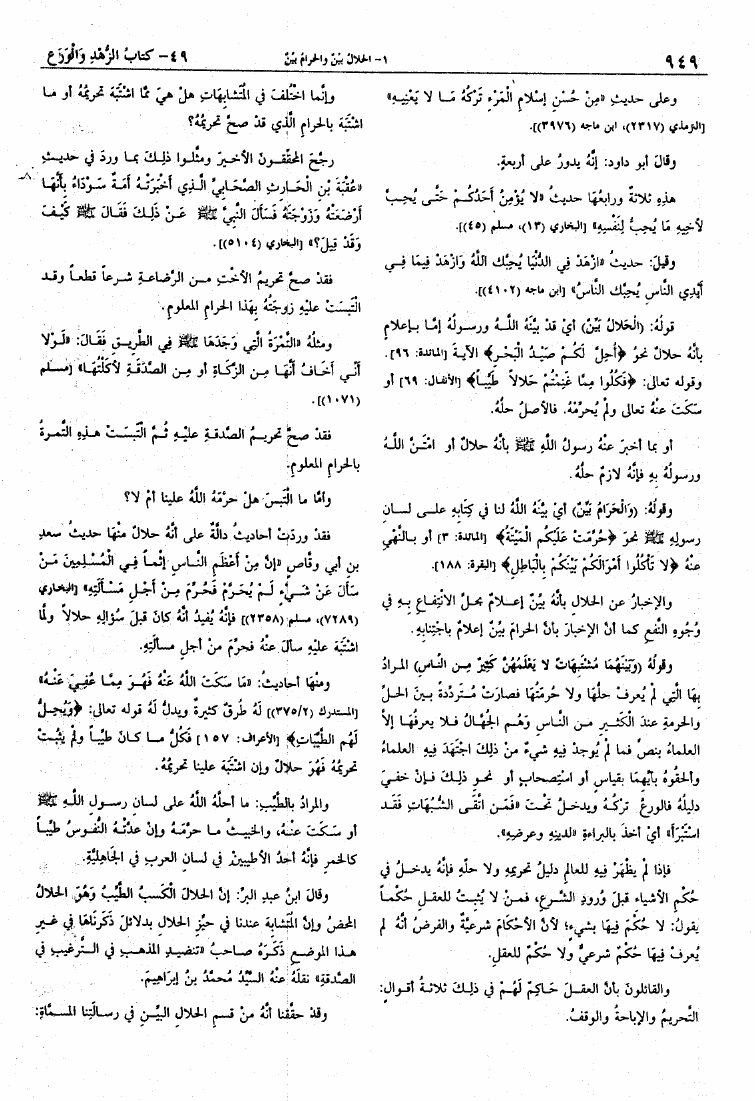 ٩٤٩
١- الحلالُ بيِّنٌ والحرامُ بيِّنٌ
٤٩- كتابُ الزُّهْدِ وَالْوَرَعِ
وعلى حديثِ «مِنْ حُسْنِ إسْلَامِ المَرْءِ تَرْكُهُ مَا لا يَعْنِيهِ»
[الترمذي (٢٣١٧)، ابن ماجه (٣٩٧٦)].
وقالَ أبو داود: إنَّهُ يدورُ على أربعةٍ.
هذهِ ثلاثةٌ ورابعُها حديثُ «لا يُؤمِنُ أحَدُكُمْ حَتَّى يُحِبَّ
لأخيهِ مَا يُحِبُّ لِنَفْسِهِ» [البخاري (١٣)، مسلم (٤٥)].
وقيلَ: حديثُ «ازْهَدْ فِي الدُّنْيَا يُحِبُّكَ اللَّهُ وَازْهَدْ فِيمَا فِي
أيْدِي النَّاسِ يُحِبُّكَ النَّاسُ» [ابن ماجه (٤١٠٢)].
قولُهُ: (الْحَلالُ بَيِّنٌ) أيْ قدْ بيَّنَهُ اللَّهُ ورسولُهُ إمَّا بإعلامٍ
بأنَّهُ حلالٌ نحوُ ﴿أُحِلَّ لَكُمْ صَيْدُ الْبَحْرِ﴾ الآيةَ [المائدة: ٩٦].
وقولِه تعالى: ﴿فَكُلُوا مِمَّا غَنِمْتُمْ حَلالاً طَيِّباً﴾ [الأنفال: ٦٩] أو
سَكَتَ عنْهُ تعالى ولمْ يُحرِّمْهُ. فالأصلُ حلُّهُ.
أو بما أخبرَ عنْهُ رسولُ اللَّهِ ﷺ بأنَّهُ حلالٌ أو امْتَنَّ اللَّهُ
ورسولُهُ بهِ فإنَّهُ لازمٌ حلُّهُ.
وقولُهُ: (وَالْحَرامُ بَيِّنٌ) أيْ بيَّنَهُ اللَّهُ لنا في كتابِهِ على لسانِ
رسولِهِ ﷺ نحوَ ﴿حُرِّمَتْ عَلَيْكُم الْمَيْتَةُ﴾ [المائدة: ٣] أو بالنَّهْيِ
عنْهُ ﴿لا تَأْكُلُوا أمْوَالَكُمْ بَيْنَكُمْ بِالْبَاطِلِ﴾ [البقرة: ١٨٨].
والإخبارُ عن الحلالِ بأنَّهُ بيِّنٌ إعلامٌ بحلِّ الانْتِفاعِ بهِ في
وُجُوهِ النَّفعِ كما أن الإخبارَ بأنَّ الحرامَ بيِّنٌ إعلامٌ باجْتِنابِهِ.
وقولُهُ (وَبَيْنَهُمَا مُشْتَبِهَاتٌ لا يَعْلَمُهُنَّ كَثِيرٌ مِن النَّاسِ) المرادُ
بِهَا الَّتِي لمْ يُعرفْ حلُّها ولا حرمتُها فصارَتْ مُتَردِّدةً بينَ الحلِّ
والحرمةِ عندَ الْكَثيرِ منَ النَّاسِ وَهُم الْجُهَّالُ فلا يعرفُها إلاَّ
العلماءُ بنصٍّ فما لم يُوجدْ فيهِ شيءٌ منْ ذلكَ اجْتَهدَ فيهِ العلماءُ
وألحقُوهُ بأيِّهِما بقياسٍ أو اسْتِصحابٍ أو نحوِ ذلكَ فإنْ خفيَ
دليلُهُ فالورعُ تركُهُ ويدخلُ تحتَ «فَمَنْ اتَّقَى الشُّبُهَاتِ فَقَد
اسْتَبْرَأَ» أيْ أخذَ بالبراءةِ «لدينِهِ وعرضِهِ».
فإذا لمْ يظهَرْ فيهِ للعالمِ دليلُ تحريمِهِ ولا حلِّهِ فإنَّهُ يدخلُ في
حُكْمِ الأشياءِ قبلَ وُرُودِ الشَّرعِ، فمنْ لا يُثبِتُ للعقلِ حُكْماً
يقولُ: لا حُكْمَ فيهَا بشيءٍ؛ لأنَّ الأحْكَامَ شرعيَّةٌ والفرضُ أنَّهُ لم
يُعرفْ فيهَا حُكْمٌ شرعيٌّ ولا حُكْمٌ للعقلِ.
والقائلونَ بأنَّ العقلَ حَاكِمٌ لَهُمْ في ذلكَ ثلاثةُ أقوالٍ:
التَّحريمُ والإباحةُ والوقفُ.
وإنَّما اخْتُلفَ في الْمُتشابِهَاتِ هلْ هيَ ممَّا اشْتَبَهَ تحريمُهُ أو ما
اشْتَبَهَ بالحرامِ الَّذي قدْ صحَّ تحريمُهُ؟
رجَّحَ المحقِّقونَ الأخيرَ ومثَّلُوا ذلكَ بما وردَ في حديثِ
«عُقْبَةَ بْنِ الْحَارِثِ الصَّحَابِيِّ الَّذِي أخْبَرَتْهُ أمَةٌ سَوْدَاءُ بِأَنَّهَا
أرْضَعَتْهُ وَزَوْجَتَهُ فَسَأَلَ النَّبِيَّ ﷺ عَنْ ذَلِكَ فَقَالَ ﷺ كَيْفَ
وَقَدْ قِيلَ؟» [البخاري (٥١٠٤)].
فقدْ صحَّ تحريمُ الأختِ من الرَّضاعةِ شرعاً قطعاً وقد
الْتَبسَتْ عليهِ زوجتُهُ بِهَذا الحرامِ المعلومِ.
ومثلُهُ «التَّمْرَةُ الَّتِي وَجَدَهَا ﷺ فِي الطَّرِيقِ فَقَالَ: «لَوْلا
أنِّي أخَافُ أَنَّهَا مِن الزَّكَاةِ أو مِن الصَّدَقَةِ لأَكَلْتُهَا» [مسلم
(١٠٧١)].
فقدْ صحَّ تحريمُ الصَّدقةِ عليهِ ثُمَّ الْتَبَسَتْ هذهِ التَّمرةُ
بالحرامِ المعلومِ.
وأمَّا ما الْتَبسَ هلْ حرَّمهُ اللَّهُ علينا أمْ لا؟
فقدْ وردَتْ أحاديثُ دالَّةٌ على أنَّهُ حلالٌ منْهَا حديثُ سعدِ
بنِ أبي وقَّاصٍ «إنَّ مِنْ أعْظَمِ النَّاسِ إثْماً فِي الْمُسْلِمِينَ مَنْ
سَأَلَ عَنْ شَيْءٍ لَمْ يُحَرَّمْ فَحُرِّمَ مِنْ أجْلِ مَسْأَلَتِهِ» [البخاري
(٧٢٨٩)، مسلم (٢٣٥٨)] فإنَّهُ يُفيدُ أنَّهُ كانَ قبلَ سُؤالِهِ حلالاً ولمَّا
اشْتَبَهَ عليهِ سألَ عنْهُ فحرِّمَ منْ أجلِ مسألتِهِ.
ومنهَا أحاديثُ: «مَا سَكَتَ اللَّهُ عَنْهُ فَهُوَ مِمَّا عُفِيَ عَنْهُ»
[المستدرك (٣٧٥/٢)] لَهُ طُرقٌ كثيرةٌ ويدلُّ لَهُ قولُه تعالى: ﴿وَيُحِلُّ
لَهُم الطَّيِّبَاتِ﴾ [الأعراف: ١٥٧] فكُلُّ ما كانَ طيِّباً ولمْ يثبُتْ
تحريمُهُ فَهُوَ حلالٌ وإن اشْتَبَهَ علينا تحريمُهُ.
والمرادُ بالطَّيِّبِ: ما أحلَّهُ اللَّهُ على لسانِ رسولِ اللَّهِ ﷺ
أو سَكَتَ عنْهُ، والخبيثُ ما حرَّمَهُ وإنْ عدَّتْهُ النُّفوسُ طيِّباً
كالخمرِ فإنَّهُ أحدُ الأطيبينَ في لسانِ العربِ في الجَاهليَّةِ.
وقالَ ابنُ عبدِ البرِّ: إنَّ الحلالَ الْكَسبُ الطَّيِّبُ وَهُوَ الحلالُ
المحضُ وإنَّ المُتَشابِهَ عندنا في حيِّزِ الحلالِ بدلائلَ ذَكَرْنَاهَا في غيرِ
هذا الموضعِ ذَكَرَهُ صاحبُ «تنضيدِ المذهبِ في التَّرغيبِ في
الصَّدقةِ» نقلَهُ عنْهُ السَّيِّدُ مُحمَّدُ بنُ إبراهيمَ.
وقدْ حقَّقْنا أنَّهُ منْ قسمِ الحلالِ البيِّنِ في رسالتِنا المسمَّاةِ: